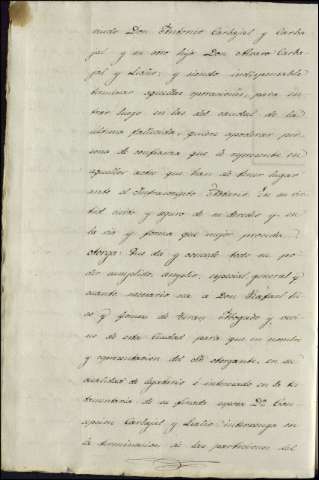 cuado Don Antonio Carbajal y Carba
jal y su otro hijo Don Alvaro Carba
jal y Liaño; y siendo indispensable
terminar aquellas operaciones, para en
trar luego en las del caudal de la
ultima fallecida, quiere apoderar per
sona de confianza que le represente en
aquellos actos que han de tener lugar
ante el Infrascripto Notario. En su vir
tud cierto y seguro de su derecho y en
la via y forma que mejor proceda,
otorga: Que da y concede todo su po
der cumplido, amplio, especial, general y
cuanto necesario sea a Don Rafael
y Gomez de Abogado y veci
no de esta Ciudad para que en nombre
y representacion del Sr. otorgante, en su
calidad de legatario é interesado en la tes
tamentaria de su finada esposa Dª Con
cepcion Carbajal y Liaño intervenga en
la terminacion de las particiones del